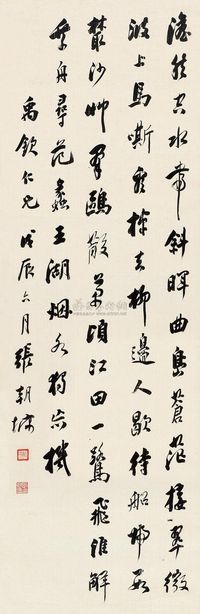 澹然空水帶斜暉曲島蒼茫接翠微
波上馬嘶看棹去柳邊人歇待船歸數
叢沙艸羣鷗散萬頃江田一鷺飛誰解
乘舟尋范蠡五湖烟水獨忘機
禹欽仁兄 戊辰六月 張朝墉